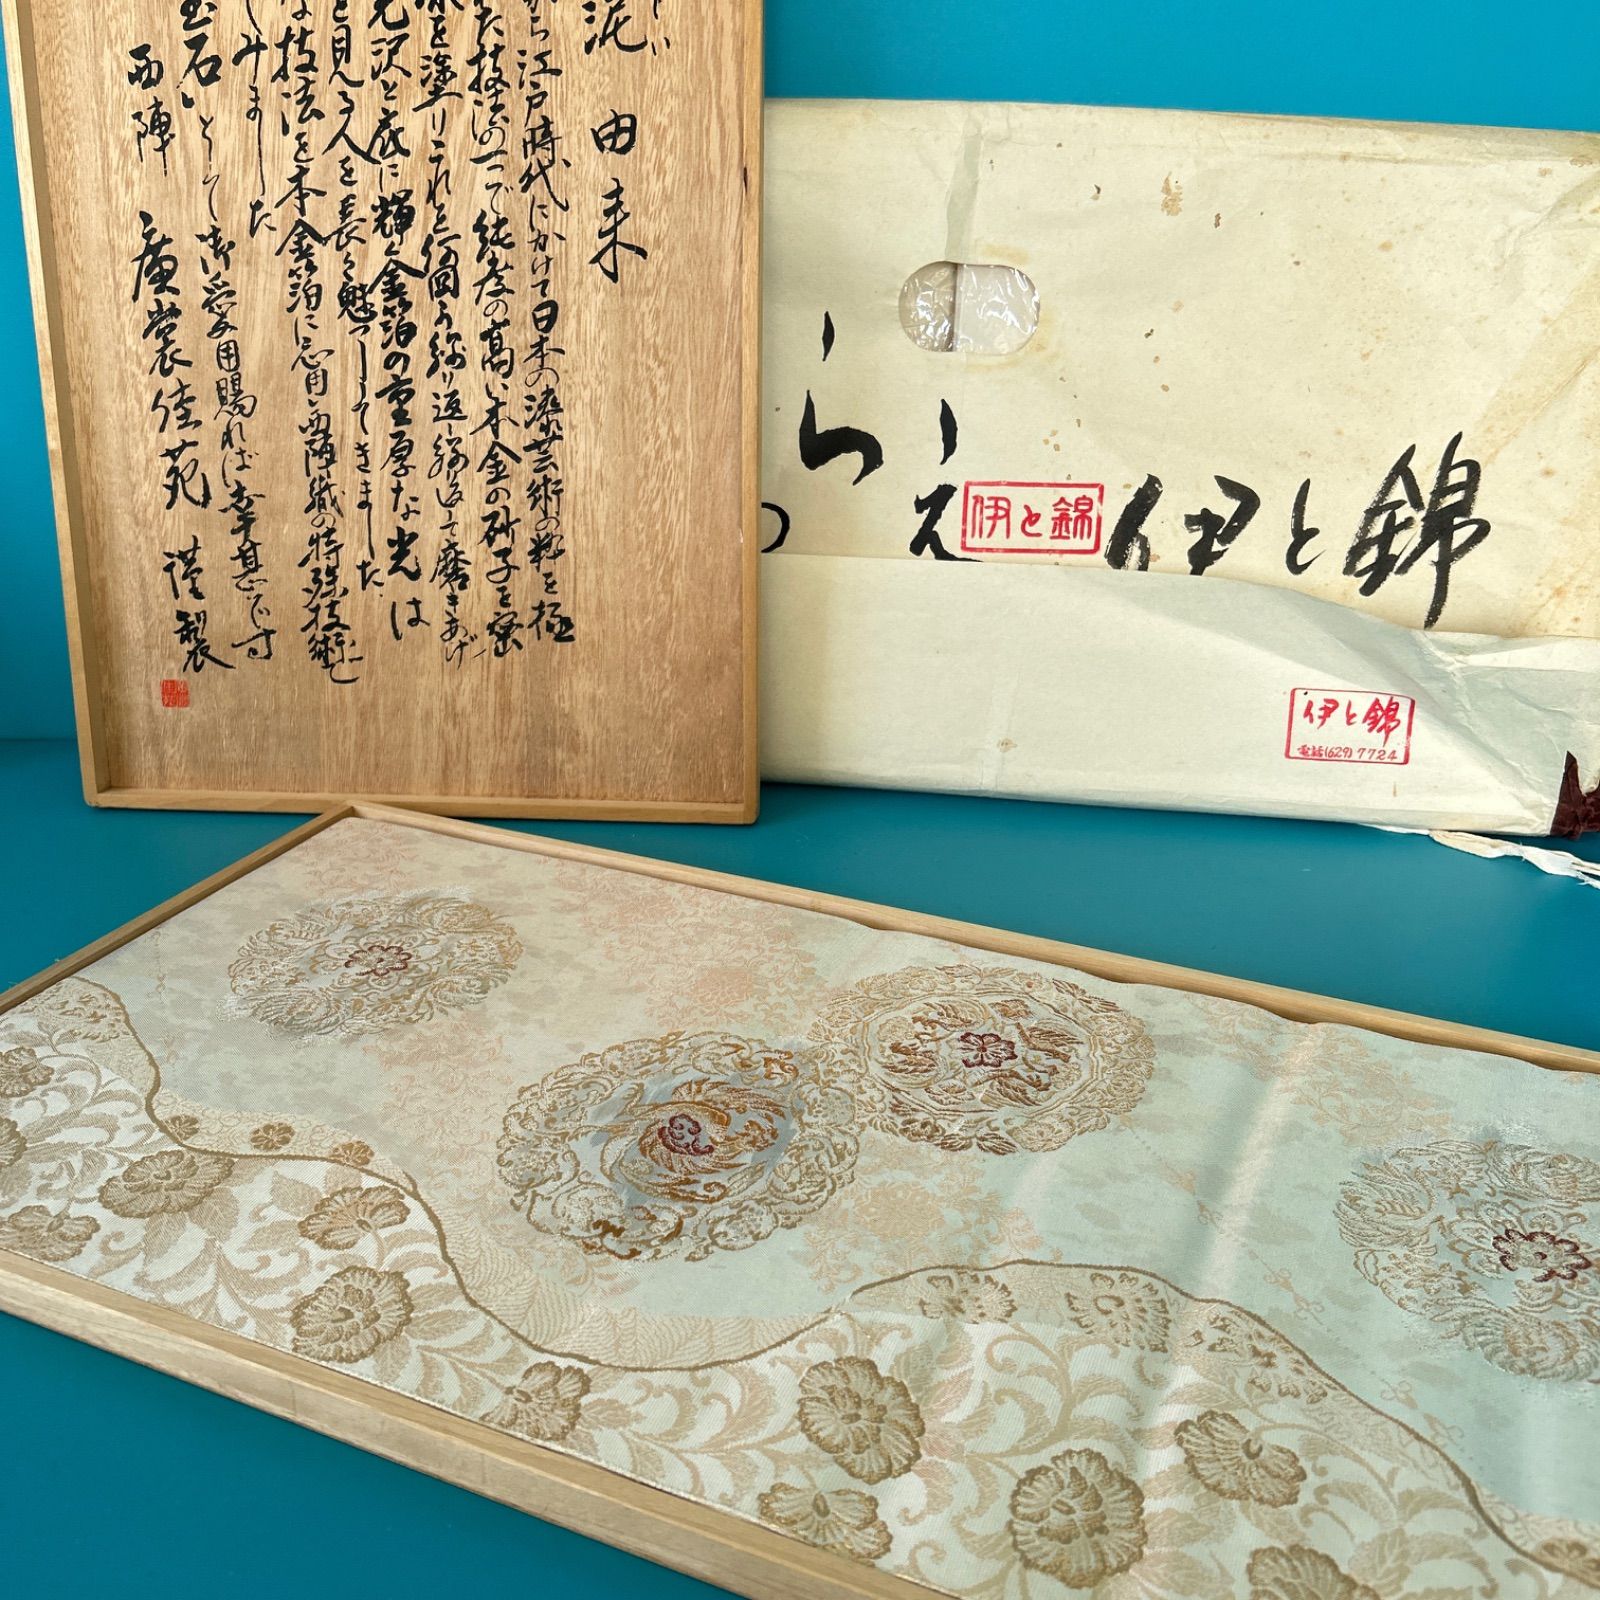 泥 由来
から江戸時代にかけて日本の漆芸術の粋を極
た技法の一つで純度の高い本金の砂子を蜜
を塗りこれを何回も繰り返し繰り返して磨きあげ
光沢と底に輝く金箔の重厚な光は
と見る人を長く魅了してきました
な技法を本金箔に応用し西陣織の特殊技術で
てみました
宝石として御愛用賜れば幸甚です
西陣 廣裳佳苑 謹製
らえ
伊と錦
伊と錦
伊と錦
電話(629)7724